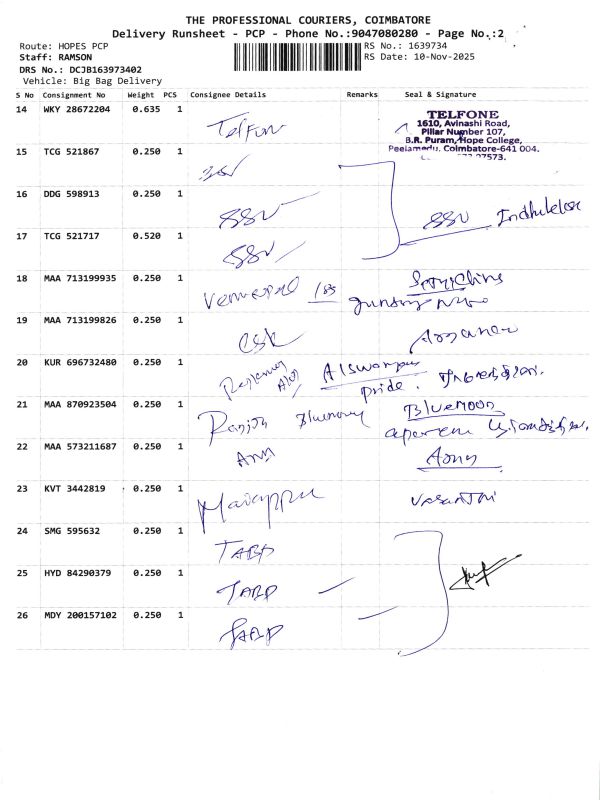 THE PROFESSIONAL COURIERS, COIMBATORE
Delivery Runsheet - PCP - Phone No.:9047080280 - Page No.:2
Route: HOPES PCP
RS No.: 1639734
Staff: RAMSON
RS Date: 10-Nov-2025
DRS No.: DCJB163973402
Vehicle: Big Bag Delivery
S No Consignment No Weight PCS Consignee Details Remarks Seal & Signature
14 WKY 28672204 0.635 1 Telfon
TELFONE
1610, Avinashi Road,
Pillar Number 107,
B.R. Puram, Hope College,
Peelamedu, Coimbatore-641 004.
15 TCG 521867 0.250 1
16 DDG 598913 0.250 1 SSV SSV
17 TCG 521717 0.520 1 SSV
18 MAA 713199935 0.250 1
19 MAA 713199826 0.250 1 CSK
20 KUR 696732480 0.250 1 pride.
21 MAA 870923504 0.250 1 Ranjith Bluemoon Bluemoon
22 MAA 573211687 0.250 1 Ann
23 KVT 3442819 0.250 1 Vasanthi
24 SMG 595632 0.250 1 TABP
25 HYD 84290379 0.250 1 TABP
26 MDY 200157102 0.250 1 TABP